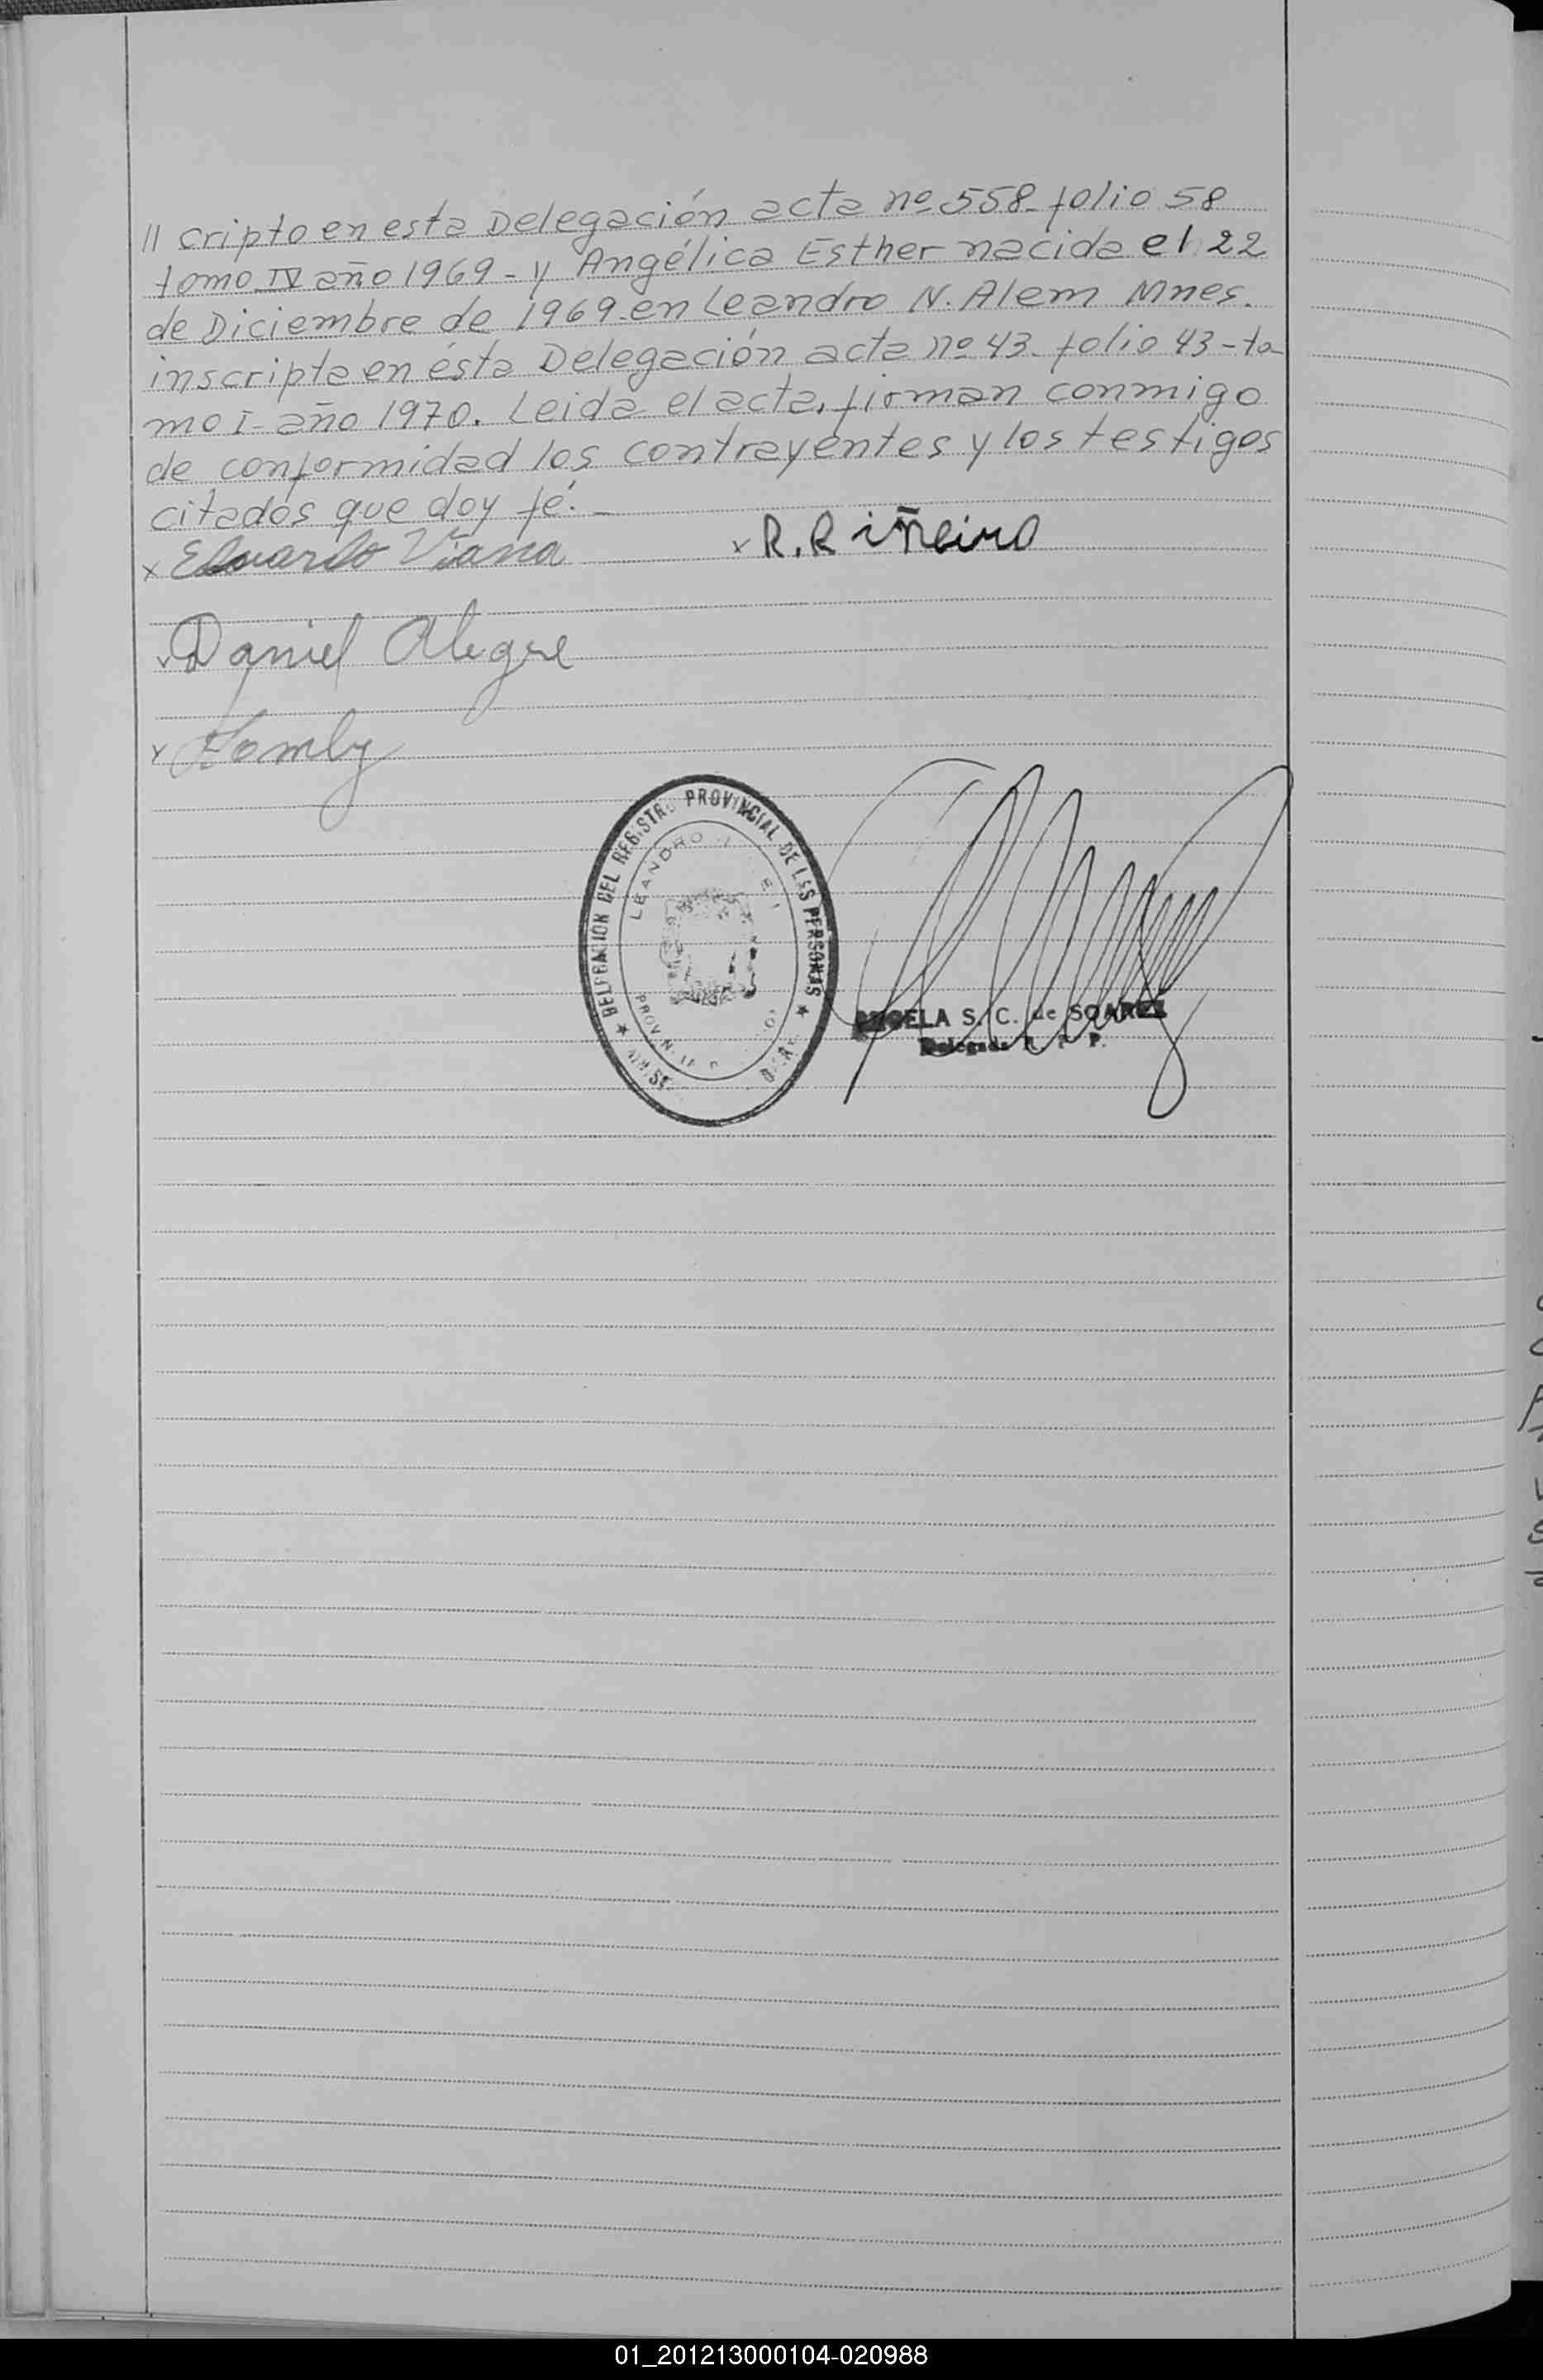 // cripto en esta Delegación acta nº 558- folio 58
tomo IV año 1969 - y Angélica Esther nacida el 22
de Diciembre de 1969 en Leandro N. Alem Mnes.
inscripta en ésta Delegación acta nº 43- folio 43 - to-
mo I - año 1970. Leida el acta, firman conmigo
de conformidad los contrayentes y los testigos
citados que doy fé. -
x Eduardo Viana x R. Riñeiro
x Daniel Alegre
x
DELEGACION DEL REGISTRO PROVINCIAL DE LAS PERSONAS
LEANDRO
S. C. de SOAREZ
Delegada R. P. P.
01_201213000104-020988